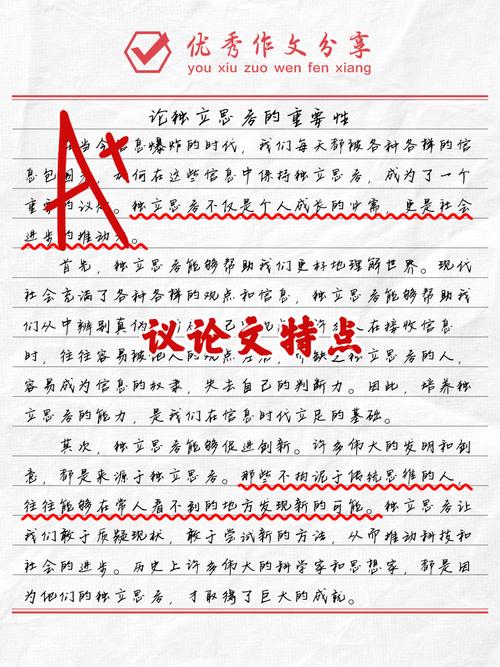 优秀作文分享
you xiu zuo wen fen xiang
论独立思考的重要性
A+
当今信息爆炸的时代，我们每天都被各种各样的信
息包围，如何在这些信息中保持独立思考，成为了一个
重要的议。独立思考不仅是个人成长的必需，更是社会
进步的推动力。
首先，独立思考能够帮助我们更好地理解世界。现代
社会充满了各种各样的观点和信息，独立思考能够帮助我
们从中辨别真伪 在接收信息
议论文特点
时，往往容易被他人的观点 独立思考的人，
容易成为信息的奴隶，失去自己的判断力。因此，培养独
立思考的能力，是我们在信息时代立足的基础。
其次，独立思考能够促进创新。许多伟大的发明和创
意，都是来源于独立思考。那些不拘泥于传统思维的人，
往往能够在常人看不到的地方发现新的可能。独立思考让
我们敢于质疑现状，敢于尝试新的方法，从而推动科技和
社会的进步。历史上许多伟大的科学家和思想家，都是因
为他们的独立思考，才取得了巨大的成就。